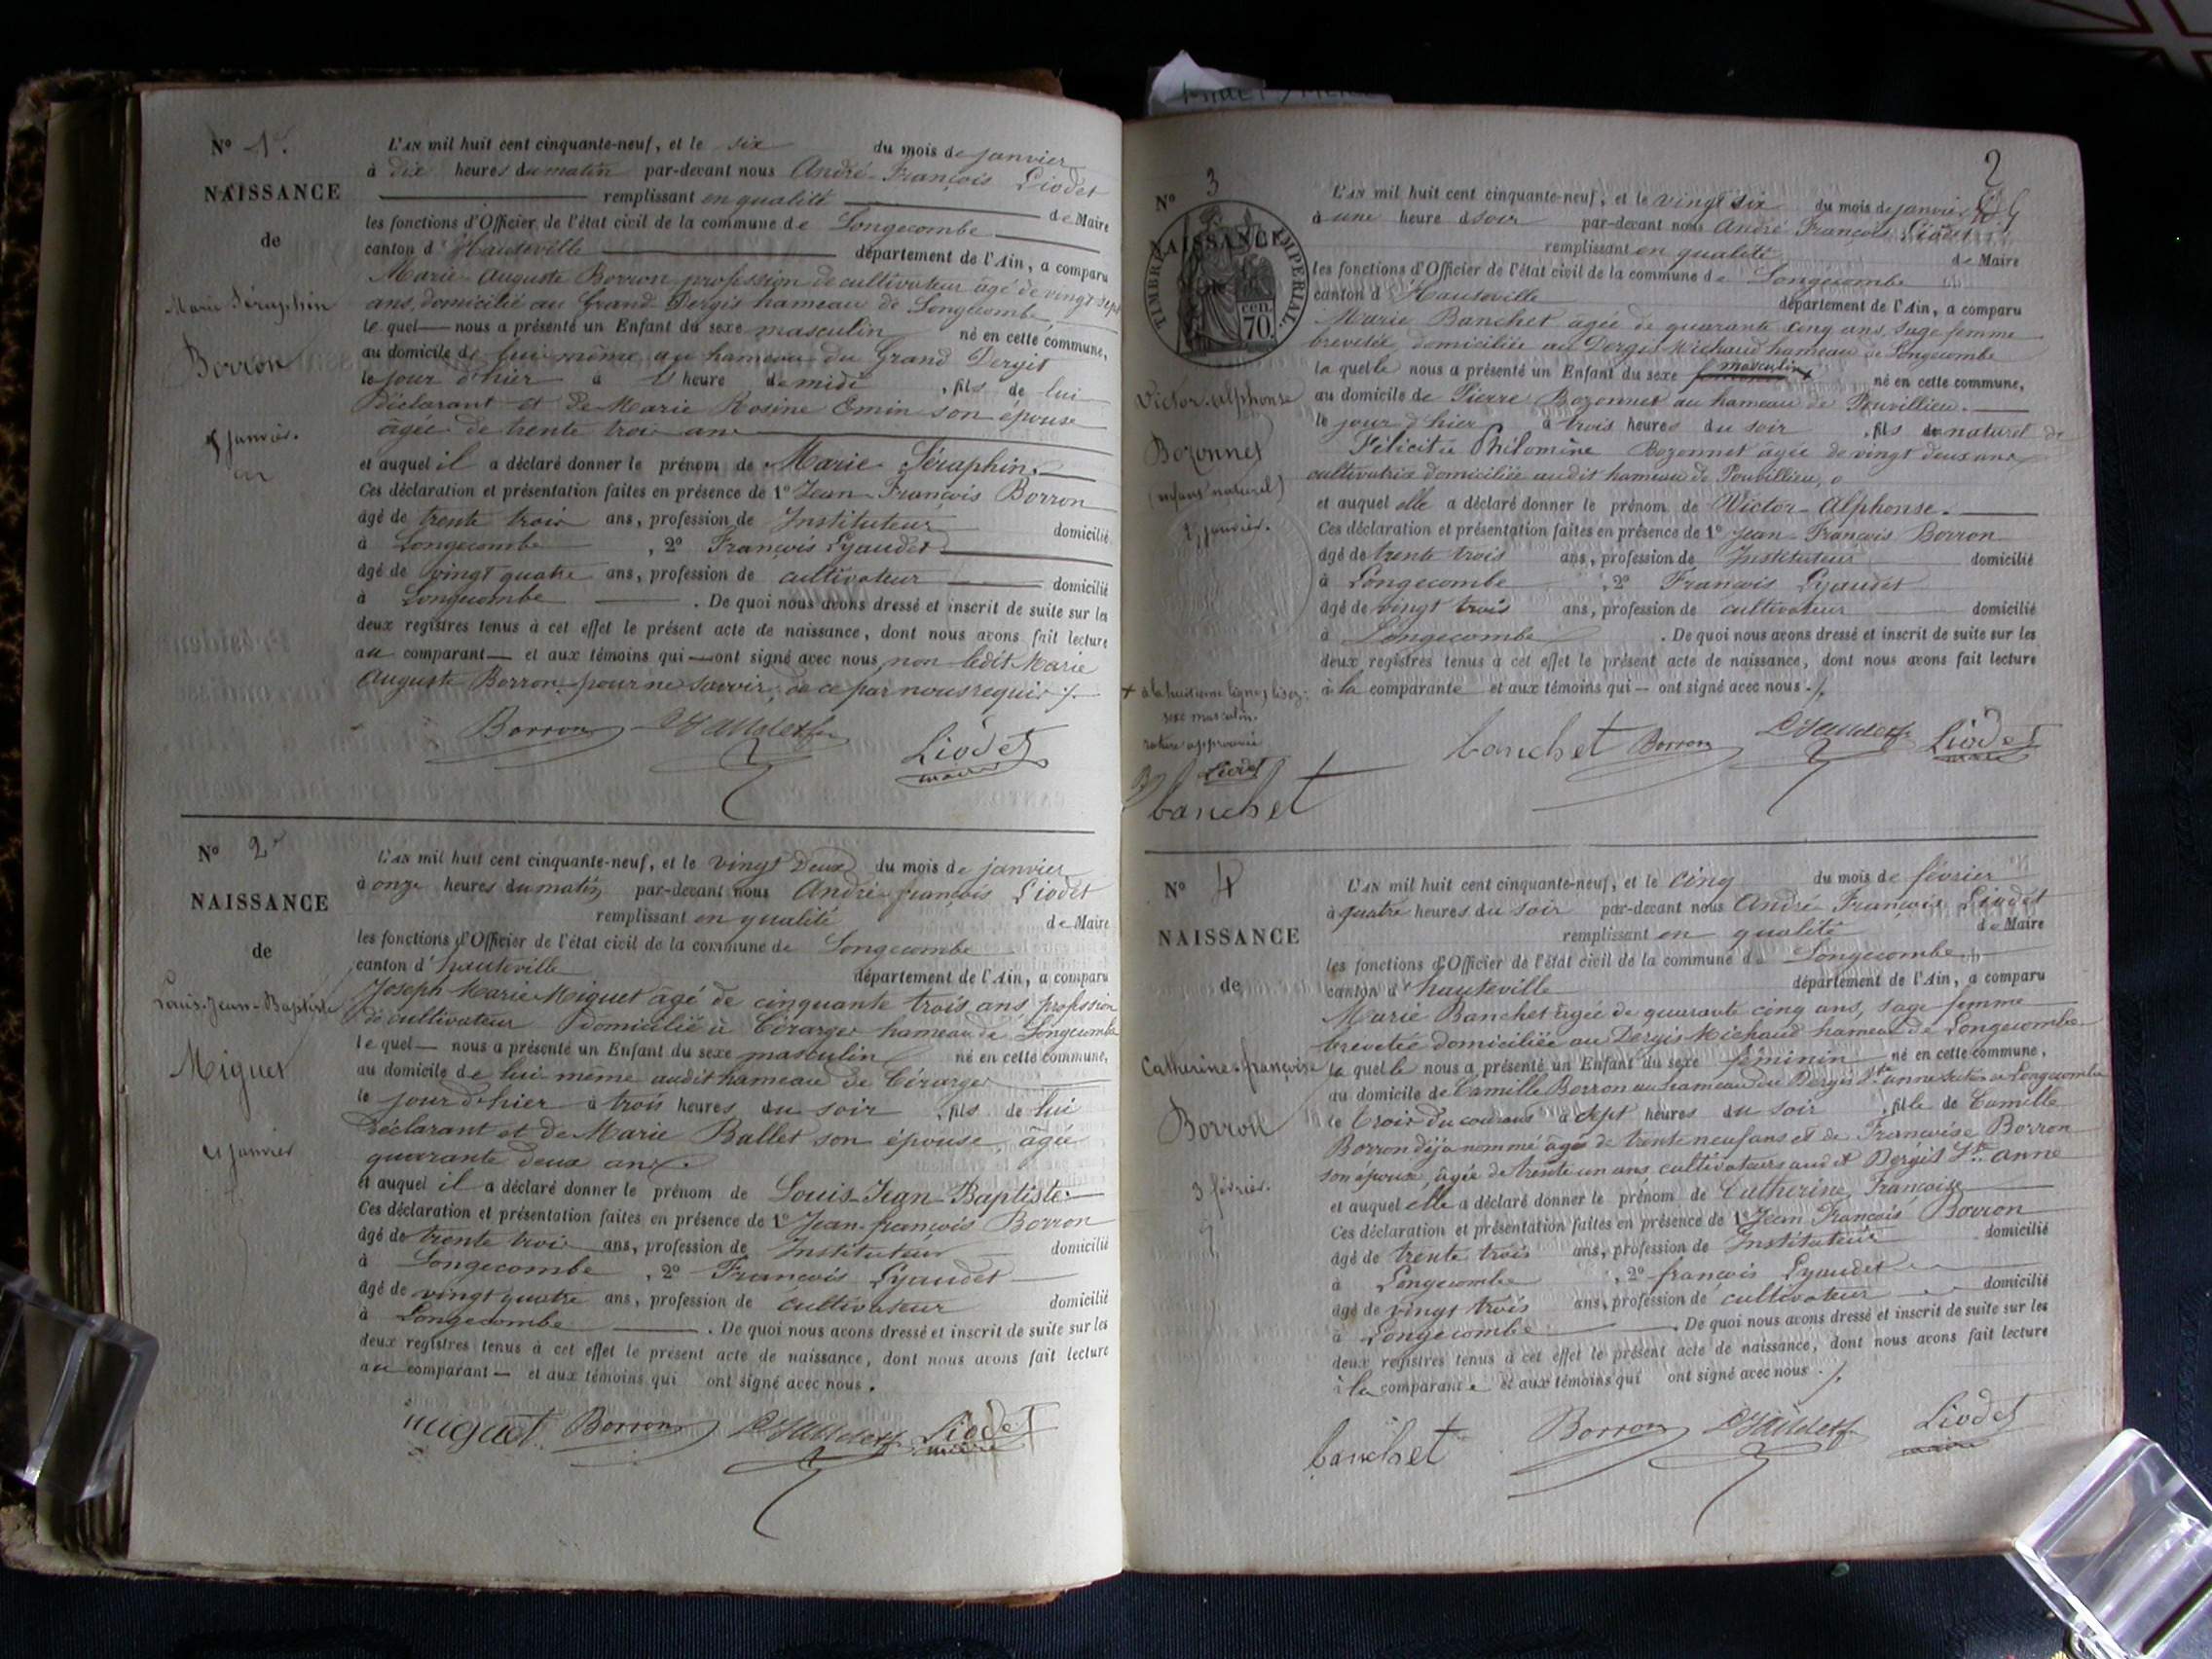 Nº 1er
NAISSANCE
de
Marie Séraphin
Borron
5 janvier.
L'AN mil huit cent cinquante-neuf, et le six du mois de janvier
à dix heures du matin par-devant nous André-François Liodet
remplissant en qualité de Maire
les fonctions d'Officier de l'état civil de la commune de Longecombe
canton d'Hauteville département de l'Ain, a comparu
Marie-Auguste Borron profession de cultivateur âgé de vingt sept
ans, domicilié au Grand Dergis hameau de Longecombe,
lequel nous a présenté un Enfant du sexe masculin né en cette commune,
au domicile de lui même au hameau du Grand Dergit
le jour d'hier à heure de midi, fils de lui
déclarant et de Marie Rosine Emin son épouse
âgée de trente trois ans
et auquel il a déclaré donner le prénom de Marie Séraphin.
Ces déclaration et présentation faites en présence de 1º Jean-François Borron
âgé de trente trois ans, profession de Instituteur domicilié
à Longecombe, 2º François Lyaudet
âgé de vingt quatre ans, profession de cultivateur domicilié
à Longecombe. De quoi nous avons dressé et inscrit de suite sur les
deux registres tenus à cet effet le présent acte de naissance, dont nous avons fait lecture
au comparant et aux témoins qui ont signé avec nous, non ledit Marie
Auguste Borron pour ne savoir, de ce par nous requis ./.
Borron Liodet
maire
Nº 2
NAISSANCE
de
Louis-Jean-Baptiste
Miguet
21 janvier
L'AN mil huit cent cinquante-neuf, et le vingt deux du mois de janvier
à onze heures du matin par-devant nous André-françois Liodet
remplissant en qualité de Maire
les fonctions d'Officier de l'état civil de la commune de Longecombe
canton d'hauteville département de l'Ain, a comparu
Joseph-Marie Miguet âgé de cinquante trois ans, profession
de cultivateur domicilié à Cérarge hameau de Longecombe
lequel nous a présenté un Enfant du sexe masculin né en cette commune,
au domicile de lui même audit hameau de Cérarge
le jour d'hier à trois heures du soir, fils de lui
déclarant et de Marie Ballet son épouse, âgée
quarante deux ans.
et auquel il a déclaré donner le prénom de Louis-Jean-Baptiste.
Ces déclaration et présentation faites en présence de 1º Jean-françois Borron
âgé de trente trois ans, profession de Instituteur domicilié
à Longecombe, 2º François Lyaudet
âgé de vingt quatre ans, profession de cultivateur domicilié
à Longecombe. De quoi nous avons dressé et inscrit de suite sur les
deux registres tenus à cet effet le présent acte de naissance, dont nous avons fait lecture
au comparant et aux témoins qui ont signé avec nous.
miguet Borron Liodet
maire
2
Nº 3
NAISSANCE
TIMBRE IMPÉRIAL.
70 cen.
Victor-alphonse
Bozonnet
(enfant naturel)
janvier.
+ à la huitieme ligne, lisez:
sexe masculin.
rature approuvée
Liodet
banchet
L'AN mil huit cent cinquante-neuf, et le vingt six du mois de janvier
à une heure du soir par-devant nous André François Liodet
remplissant en qualité de Maire
les fonctions d'Officier de l'état civil de la commune de Longecombe
canton d'Hauteville département de l'Ain, a comparu
Marie Banchet âgée de quarante cinq ans, sage femme
brevetée domiciliée au Dergis-Michaud hameau de Longecombe
laquelle nous a présenté un Enfant du sexe masculin + né en cette commune,
au domicile de Pierre Bozonnet au hameau de Pouvillieu.
le jour d'hier à trois heures du soir, fils naturel de
Félicité Philomène Bozonnet âgée de vingt deux ans
cultivatrice domiciliée audit hameau de Pouvillieu,
et auquel elle a déclaré donner le prénom de Victor-Alphonse.
Ces déclaration et présentation faites en présence de 1º Jean-François Borron
âgé de trente trois ans, profession de Instituteur domicilié
à Longecombe, 2º François Lyaudet
âgé de vingt trois ans, profession de cultivateur domicilié
à Longecombe. De quoi nous avons dressé et inscrit de suite sur les
deux registres tenus à cet effet le présent acte de naissance, dont nous avons fait lecture
à la comparante et aux témoins qui ont signé avec nous ./.
banchet Borron Liodet
maire
Nº 4
NAISSANCE
de
Catherine-françoise
Borron
3 février.
L'AN mil huit cent cinquante-neuf, et le cinq du mois de février
à quatre heures du soir par-devant nous André François Liodet
remplissant en qualité de Maire
les fonctions d'Officier de l'état civil de la commune de Longecombe
canton d'hauteville département de l'Ain, a comparu
Marie Banchet âgée de quarante cinq ans, sage femme
brevetée domiciliée au Dergis Michaud hameau de Longecombe
laquelle nous a présenté un Enfant du sexe féminin né en cette commune,
au domicile de Camille Borron au hameau du Dergis Ste anne de Longecombe
le trois du courant à sept heures du soir, fille de Camille
Borron déjà nommé âgé de trente neuf ans et de Françoise Borron
son épouse, âgée de trente un ans cultivateurs audit Dergit Ste anne
et auquel elle a déclaré donner le prénom de Catherine Françoise
Ces déclaration et présentation faites en présence de 1º Jean François Borron
âgé de trente trois ans, profession de Instituteur domicilié
à Longecombe, 2º françois Lyaudet
âgé de vingt trois ans, profession de cultivateur domicilié
à Longecombe. De quoi nous avons dressé et inscrit de suite sur les
deux registres tenus à cet effet le présent acte de naissance, dont nous avons fait lecture
à la comparante et aux témoins qui ont signé avec nous ./.
banchet Borron Liodet
maire